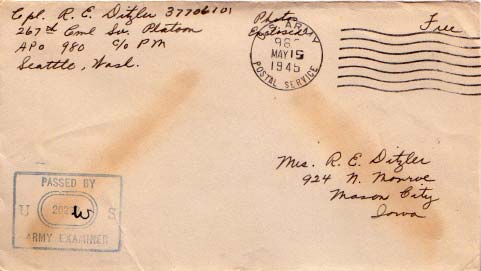 Cpl. R. E. Ditzler 37706101
267th Cml Sv. Platoon
APO 980 c/o P M
Seattle, Wash.
Photos
Enclosed
Free
U.S. ARMY
980
MAY 15
1945
POSTAL SERVICE
Mrs. R. E. Ditzler
924 N. Monroe
Mason City
Iowa
PASSED BY
U S
ARMY EXAMINER